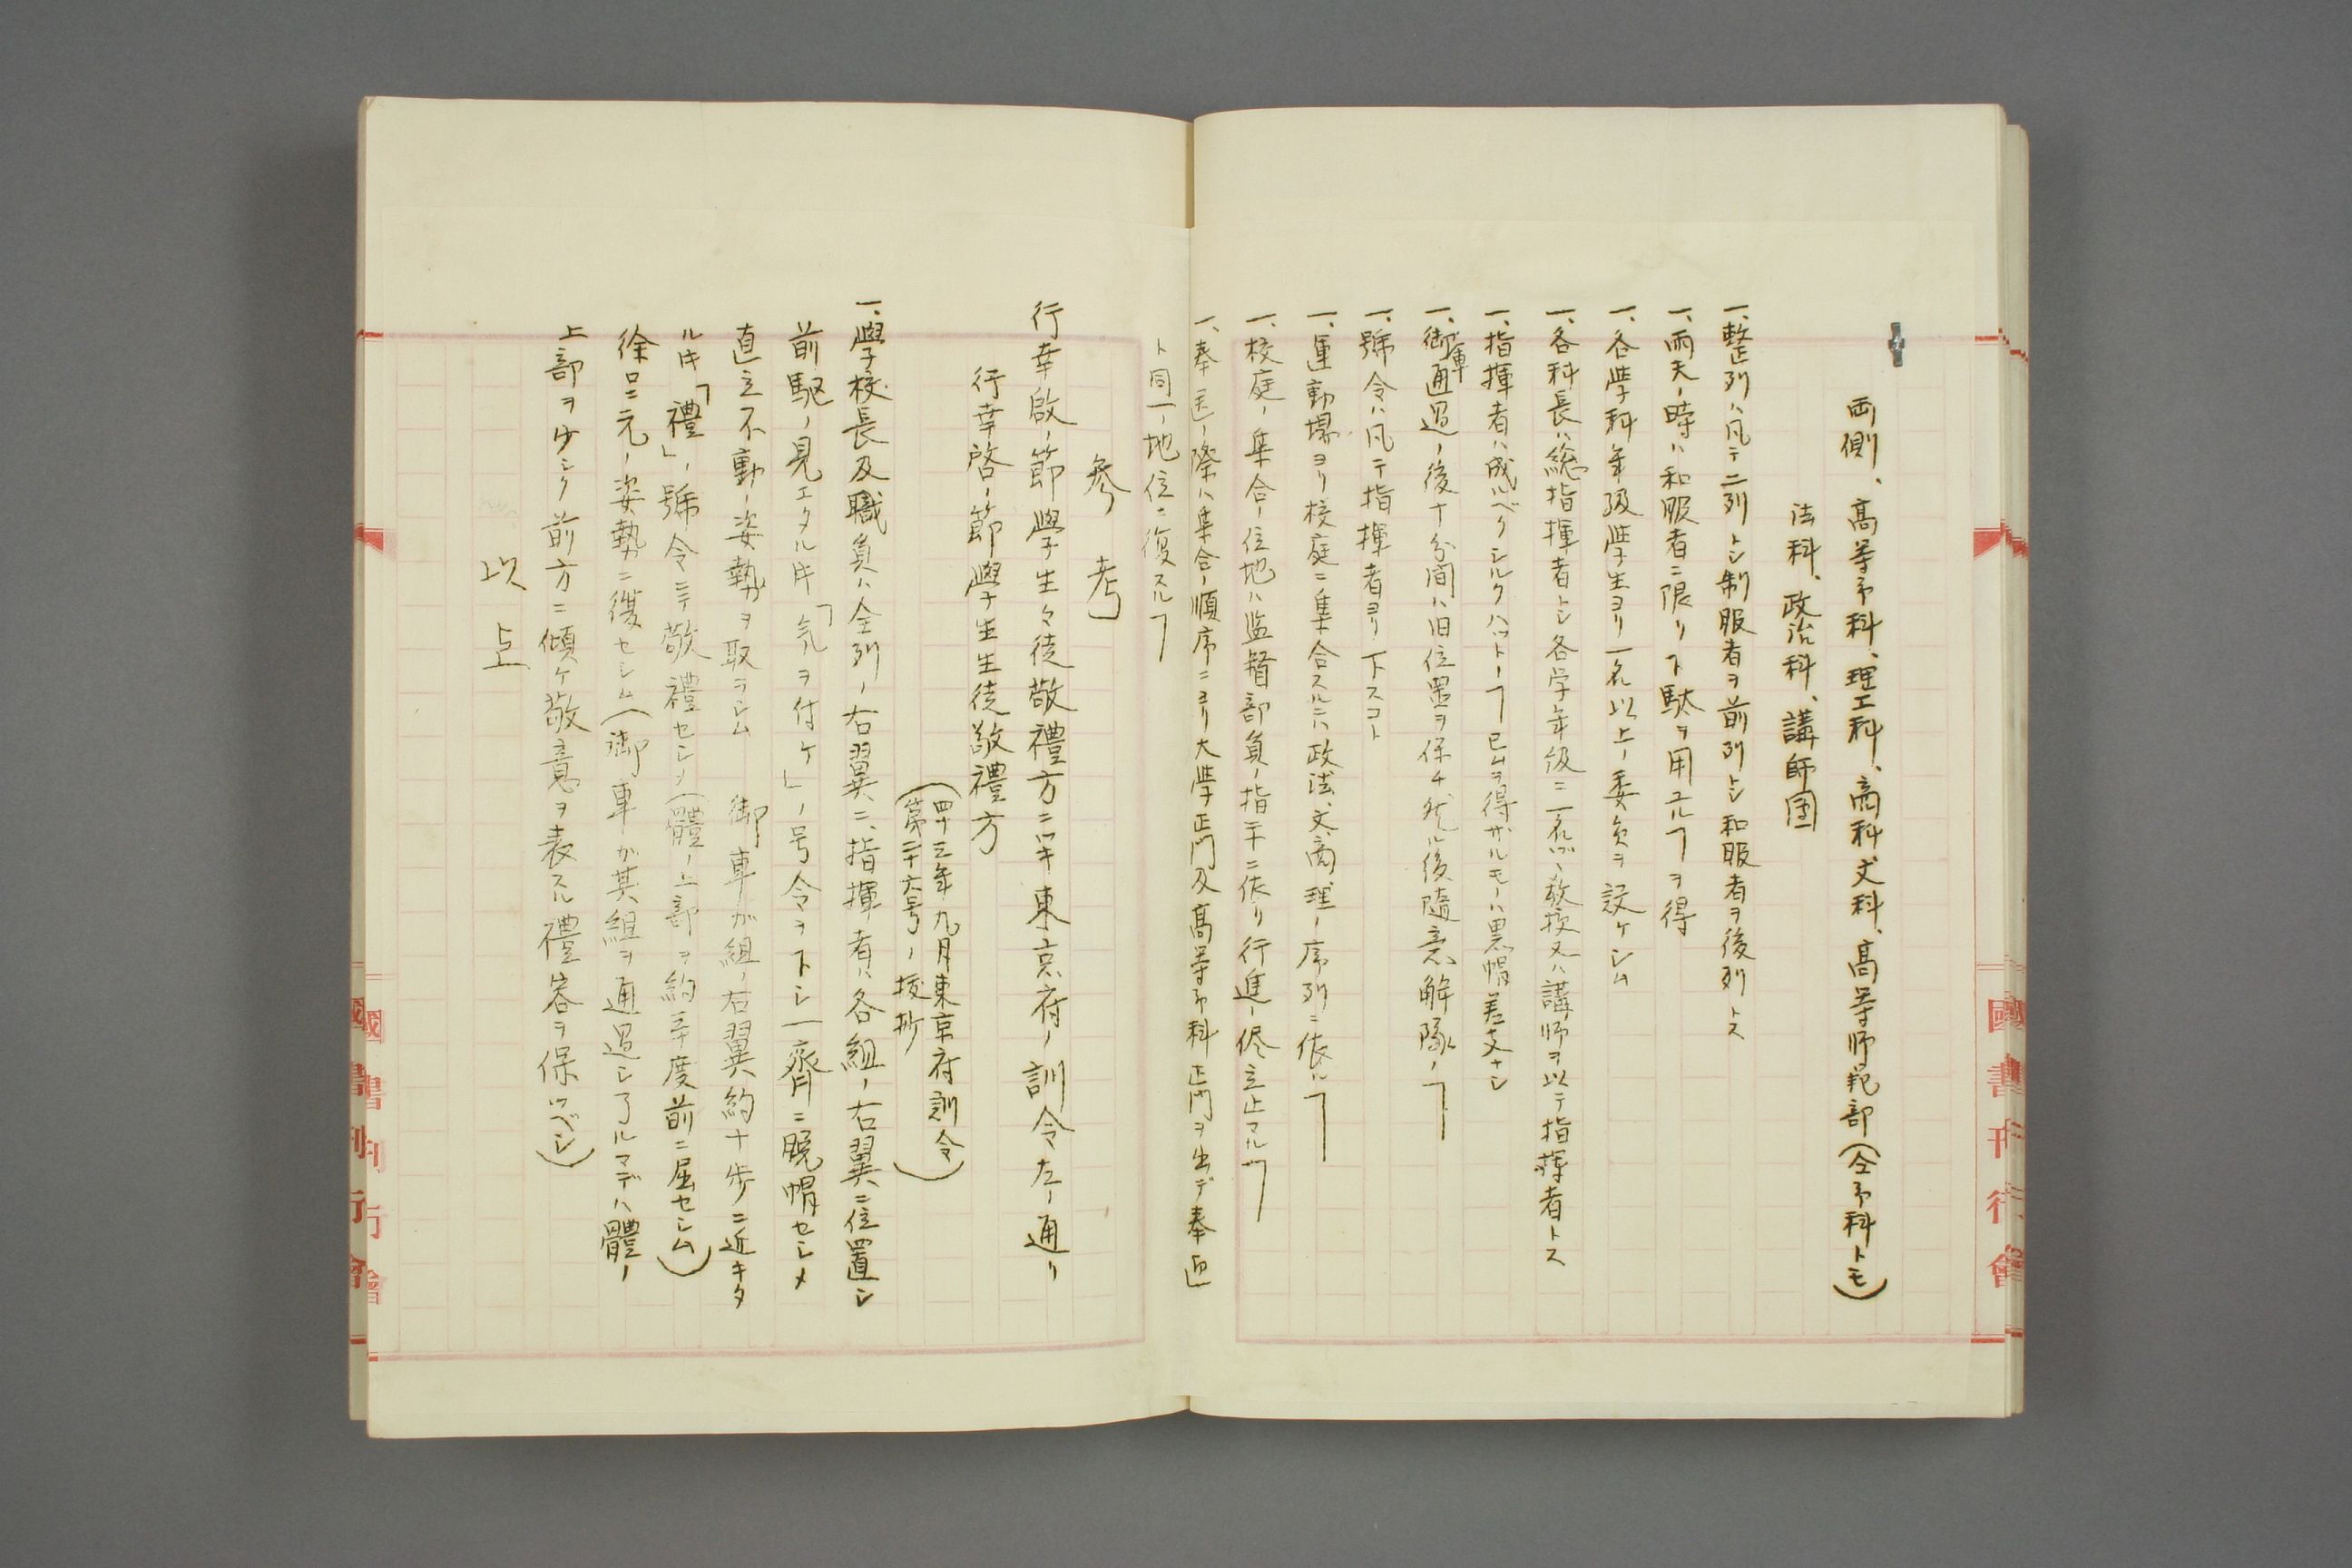 両側、高等予科、理工科、商科文科、高等師範部(仝予科トモ)
法科、政治科、講師団
一、整列ハ凡テ二列トシ制服者ヲ前列トシ和服者ヲ後列トス
一、雨天ノ時ハ和服者ニ限リ下駄ヲ用ユルヿヲ得
一、各學科年級學生ヨリ一名以上ノ委員ヲ設ケシム
一、各科長ハ総指揮者トシ各学年級ニ一名ヅヽ教授又ハ講師ヲ以テ指揮者トス
一、指揮者ハ成ルベクシルクハットノヿ已ムヲ得ザルモノハ黒帽差支ナシ
一、御車通過ノ後十分間ハ旧位置ヲ保チ然ル後随意解隊ノヿ
一、號令ハ凡テ指揮者ヨリ下スコト
一、運動場ヨリ校庭ニ集合スルニハ政法、文、商、理ノ序列ニ依ルヿ
一、校庭ノ集合ノ位地ハ監督部員ノ指示ニ依リ行進ノ侭立止マルヿ
一、奉送ノ際ハ集合ノ順序ニヨリ大學正門及高等予科正門ヲ出デ奉迎
ト同一ノ地位ニ復スルヿ
参考
行幸啟ノ節學生々徒敬禮方ニツキ東京府ノ訓令左ノ通リ
行幸啓ノ節學生生徒敬禮方
(四十三年九月東京府訓令
第二十六号ノ抜抄)
一、學校長及職員ハ全列ノ右翼ニ、指揮者ハ各組ノ右翼ニ位置シ
前駆ノ見エタル時「気ヲ付ケ」ノ号令ヲ下シ一齊ニ脱帽セシメ
直立不動ノ姿勢ヲ取ラシム 御車ガ組ノ右翼約十歩ニ近キタ
ル時「禮」ノ號令ニテ敬禮セシメ(體ノ上部ヲ約三十度前ニ屈セシム)
徐ロニ元ノ姿勢ニ復セシム(御車ガ其組ヲ通過シ了ルマデハ體ノ
上部ヲ少シク前方ニ傾ケ敬意ヲ表スル禮容ヲ保ツベシ)
以上
國書刊行會
國書刊行會